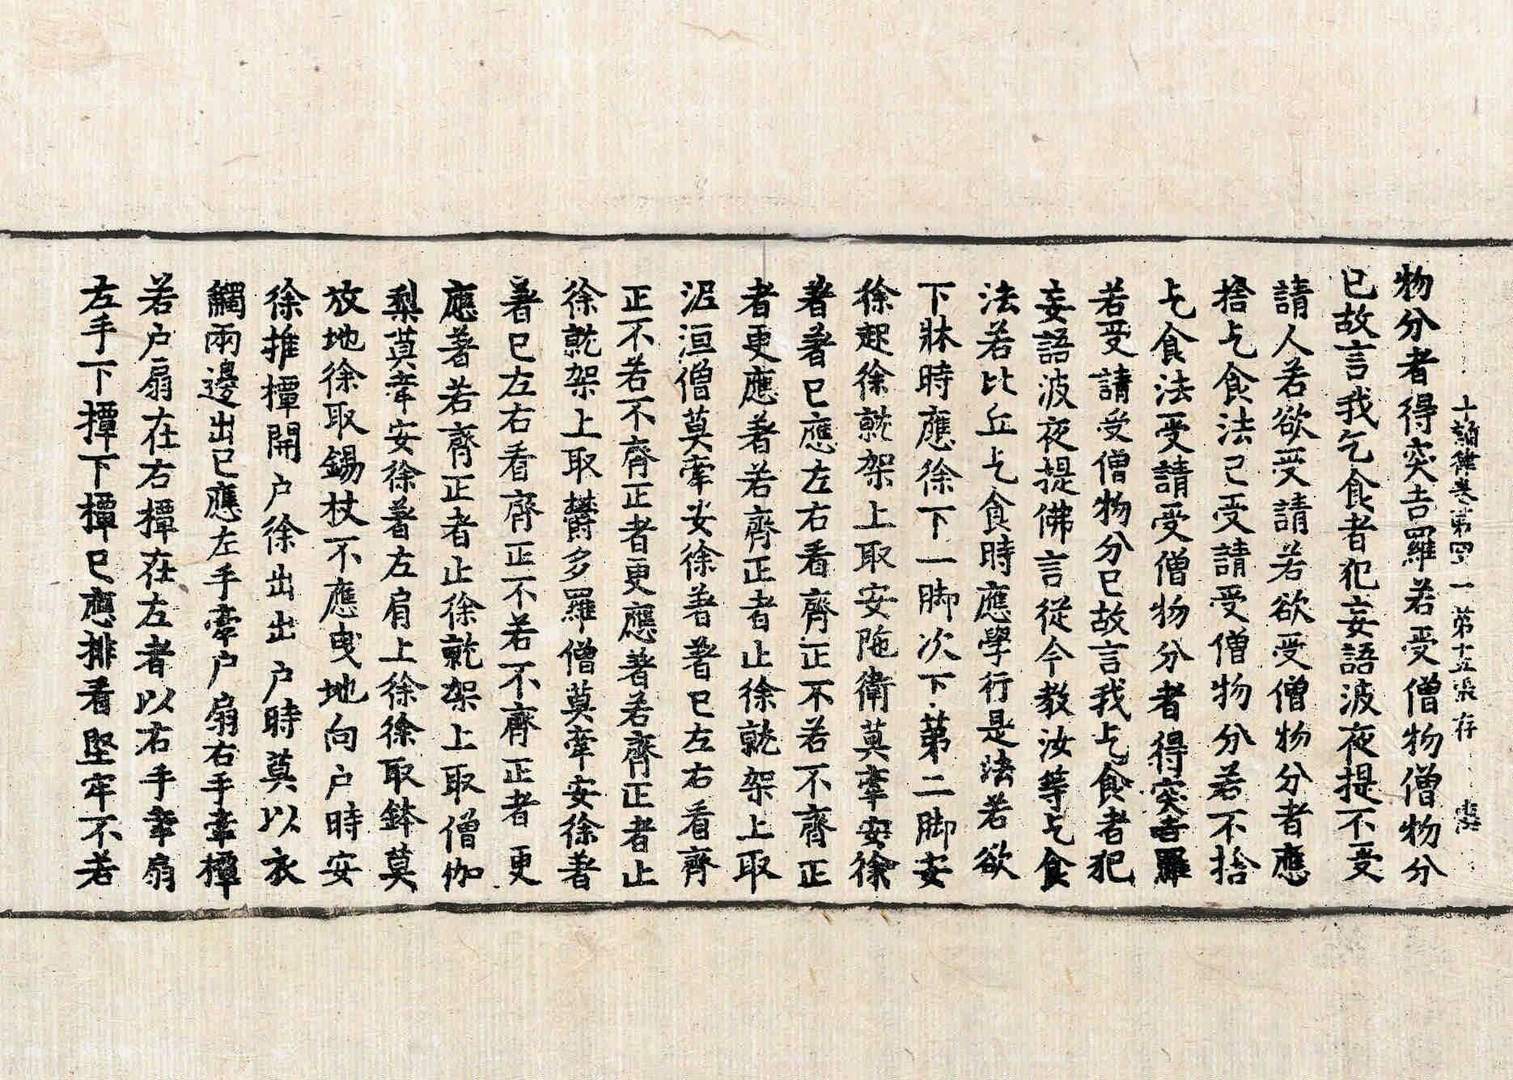 十誦律卷第四一 第十五張 存
物分者得突吉羅若受僧物僧物分
已故言我乞食者犯妄語波夜提不受
請人若欲受請若欲受僧物分者應
捨乞食法已受請受僧物分若不捨
乞食法受請受僧物分者得突吉羅
若受請受僧物分已故言我乞食者犯
妄語波夜提佛言從今教汝等乞食
法若比丘乞食時應學行是法若欲
下牀時應徐下一脚次下第二脚安
徐起徐就架上取安陁衛莫牽安徐
著著已應左右看齊正不若不齊正
者更應著若齊正者止徐就架上取
泥洹僧莫牽安徐著著已左右看齊
正不若不齊正者更應著若齊正者止
徐就架上取欝多羅僧莫牽安徐著
著已左右看齊正不若不齊正者更
應著若齊正者止徐就架上取僧伽
梨莫牽安徐著左肩上徐徐取鉢莫
放地徐取錫杖不應曳地向户時安
徐推橝開户徐出出户時莫以衣
觸兩邊出已應左手牽户扇右手牽橝
若户扇在右橝在左者以右手牽扇
左手下橝下橝已應排看堅牢不若